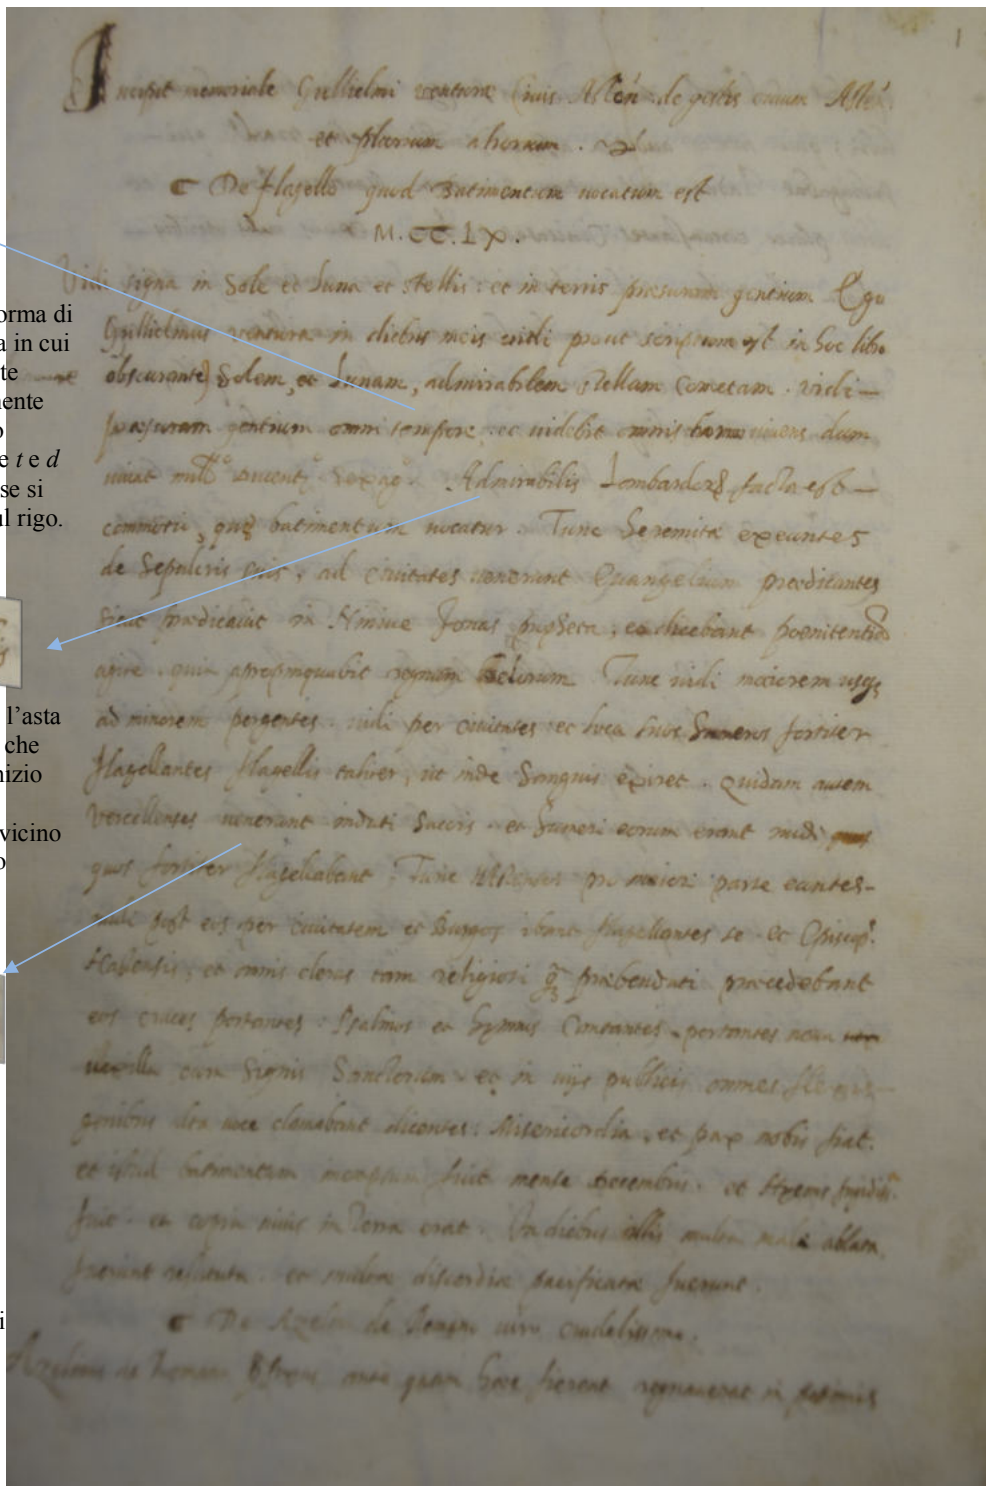 1
Incipit memoriale Gullielmi venturæ Civis Asten. de gestis civium Asteñ
et plurium aliorum.
De flagello quod Batimentum vocatum est
M.CC.LX.
Vidi signa in Sole et Luna et stellis: et in terris præsuram gentium Ego
Gullielmus ventura in diebus meis vidi prout scriptum est in hoc libro
obscurante) Solem, et Lunam, admirabilem stellam Cometam. vidi—
præsuram gentium omni tempore, et videbit omnis homo vivens dum
vivat Admirabilis Lombardoꝝ facta est—
que batimentum vocatur. Tunc heremitæ exeuntes
de Sepulcris suis, ad civitates venerunt Evangelium prædicantes
sicut prædicavit in Ninive Jonas propheta, et dicebant poenitentiā
agite. quia apropinquabit regnum Celorum. Tunc vidi maiorem usqȝ
ad minorem pergentes. vidi per civitates et loca suos humeros fortiter
flagellantes flagellis taliter, ut inde Sanguis exiret. Quidam autem
Vercellenses venerunt induti Saccis. et humeri eorum erant nudi quos
quos fortiter flagellabant. Tunc pro maiori parte euntes-
nudi post eos per civitatem et Burgos ibant flagellantes se et Episcop.
et omnis clerus tam religiosi q̃ præbendati præcedebant
eos cruces portantes: Psalmos et hymnos Cantantes portantes
vexilla cum Signis Sanctorum. et in vijs publicis omnes flexis—
genibus alta voce clamabant dicentes: Misericordia, et pax nobis fiat.
et istud batimentum inceptum fuit mense decembris. et
fuit. et copia nivis in Terra erat. In diebus illis multa mala ablata
fuerunt et multæ discordiæ pacificatæ fuerunt.
De de Romano viro crudelissimo.
de Romano ante quam hæc fierent regnaverat in
orma di
a in cui
te
nente
o
e t e d
se si
ul rigo.
l’asta
che
nizio
vicino
o
i